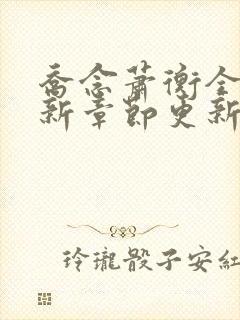 乔念萧衡全
新章节更新
玲瓏骰子安紅